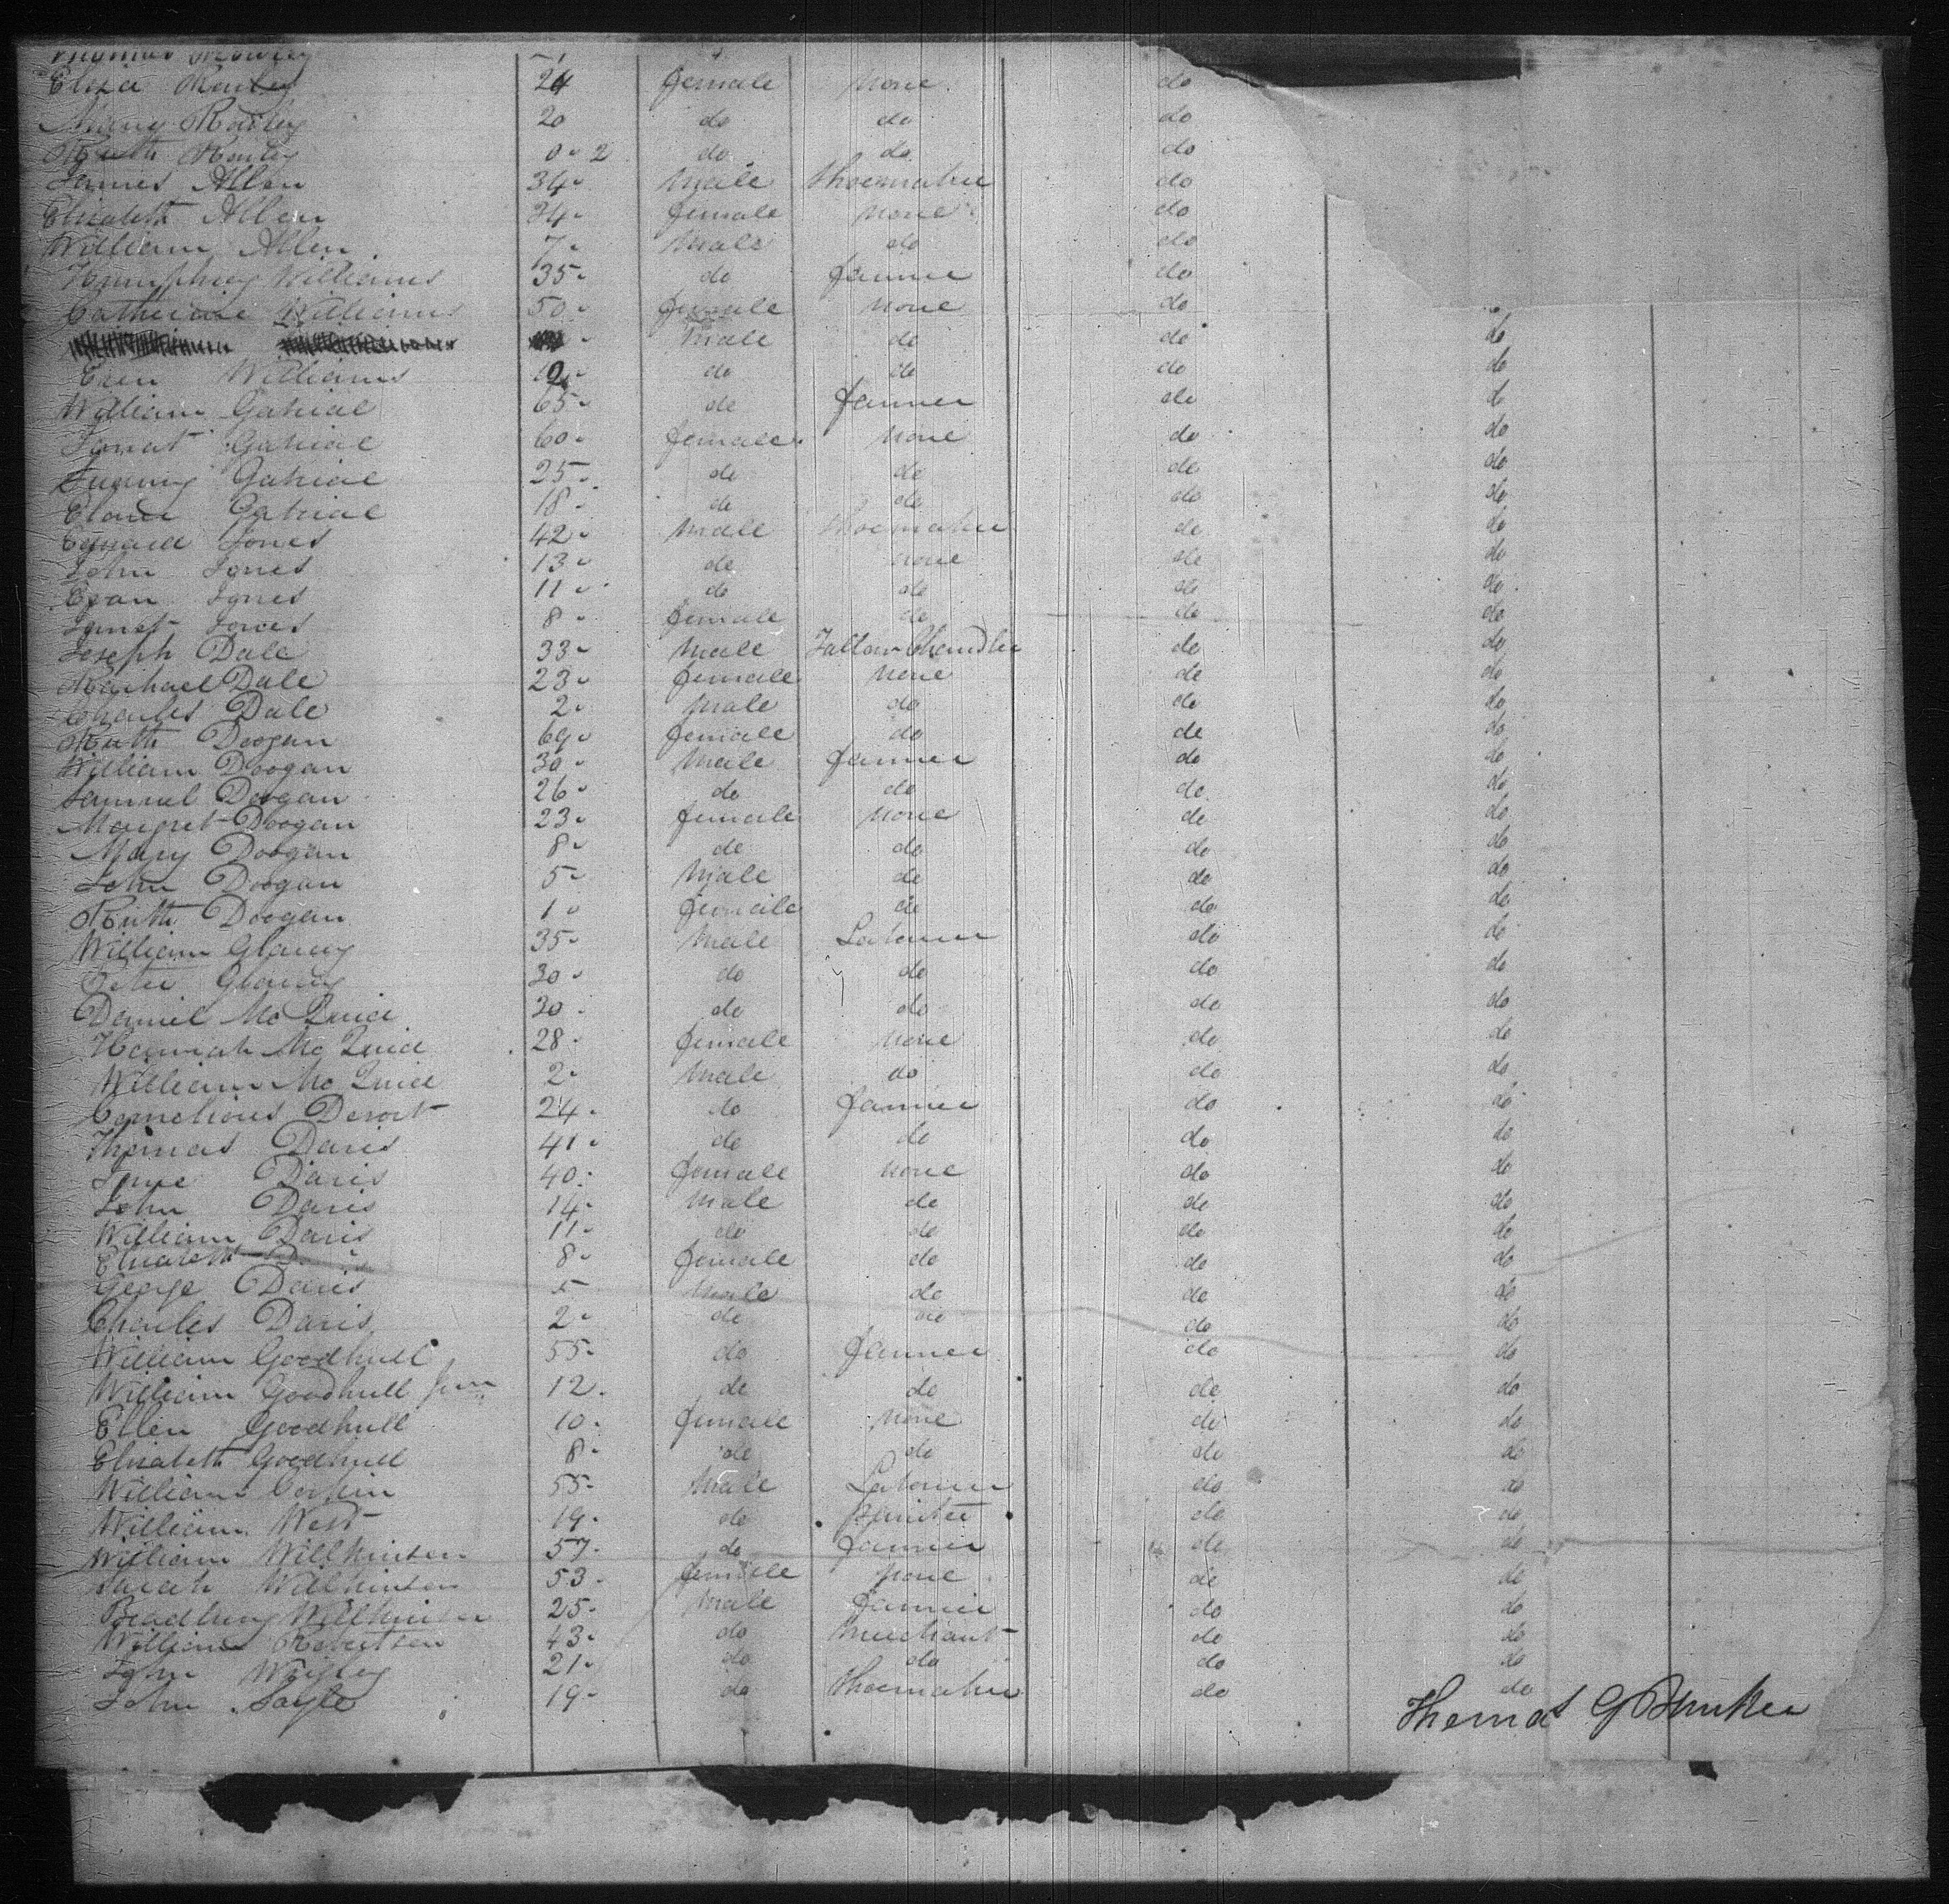 Thomas Rowley
Eliza Rowley 24 female None do
Mary Rowley 20 do do do
Ruth Rowley 0 - 2 do do do
James Allen 34 Male Shoemaker do
Elizabeth Allen 34 female None do
William Allen 7 Male do do
Humphrey Williams 35 do farmer do
Catherine Williams 50 female None do
Male do do do
Williams do do do do
William Gabrial 65 do farmer do do
Jonat Gabrial 60 female None do do
Gabrial 25 do do do do
Gabrial 18 do do do do
Edward Jones 42 Male Shoemaker do do
John Jones 13 do None do do
Evan Jones 11 do do do do
Janet Jones 8 female do do do
Joseph Dale 33 Male Tallow Chandler do do
Rachael Dale 23 female None do do
Charles Dale 2 Male do do do
Ruth Doogan 69 female do do do
William Doogan 30 Male farmer do do
Samuel Doogan 26 do do do do
Margret Doogan 23 female None do do
Mary Doogan 8 do do do do
John Doogan 5 Male do do do
Ruth Doogan 1 female do do do
William Glancy 35 Male Labourer do do
Peter Glancy 30 do do do do
Daniel Mc Quid 30 do do do do
Hannah Mc Quid 28 female None do do
William Mc Quid 2 Male do do do
Cornelious 24 do farmer do do
Thomas Davis 41 do do do do
Jane Davis 40 female None do do
John Davis 14 Male do do do
William Davis 11 do do do do
Elizabeth Davis 8 female do do do
George Davis 5 Male do do do
Charles Davis 2 do do do do
William Goodhull 55 do farmer do do
William Goodhull Jun 12 do do do do
Ellen Goodhull 10 female None do do
Elizabeth Goodhull 8 do do do do
William 55 Male Labourer do do
William West 19 do do do
William Willkinson 57 do farmer do do
Sarah Willkinson 53 female None do do
Bradbury Willkinson 25 Male farmer do do
William Robertson 43 do Merchant do do
John Wrigley 21 do do do do
John Sayle 19 do Shoemaker do do
Thomas G Bunker